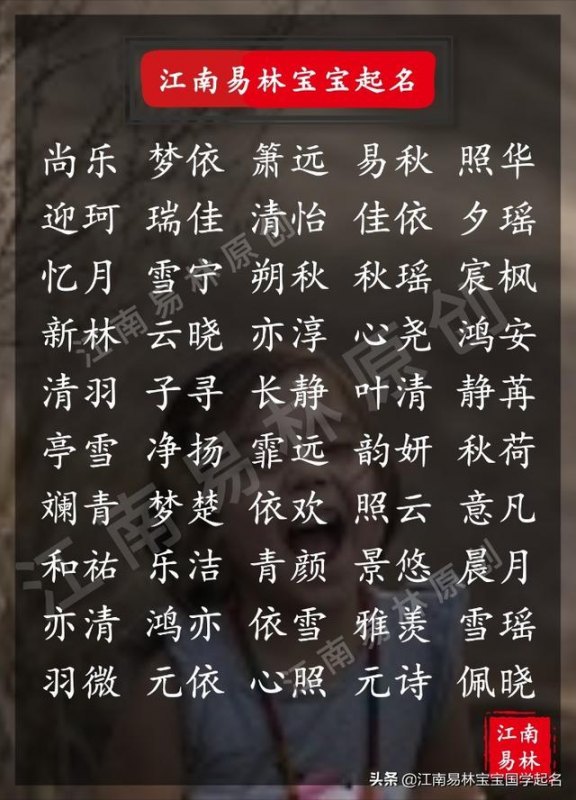 江南易林宝宝起名
尚乐 梦依 箫远 易秋 照华
迎珂 瑞佳 清怡 佳依 夕瑶
忆月 雪宁 朔秋 秋瑶 宸枫
新林 云晓 亦淳 心尧 鸿安
清羽 子寻 长静 叶清 静苒
亭雪 净扬 霏远 韵妍 秋荷
斓青 梦楚 依欢 照云 意凡
和祐 乐洁 青颜 景悠 晨月
亦清 鸿亦 依雪 雅羡 雪瑶
羽微 元依 心照 元诗 佩晓
江南易林原创
江南易林原创
江南易林原创
江南
易林
头条 @江南易林宝宝国学起名